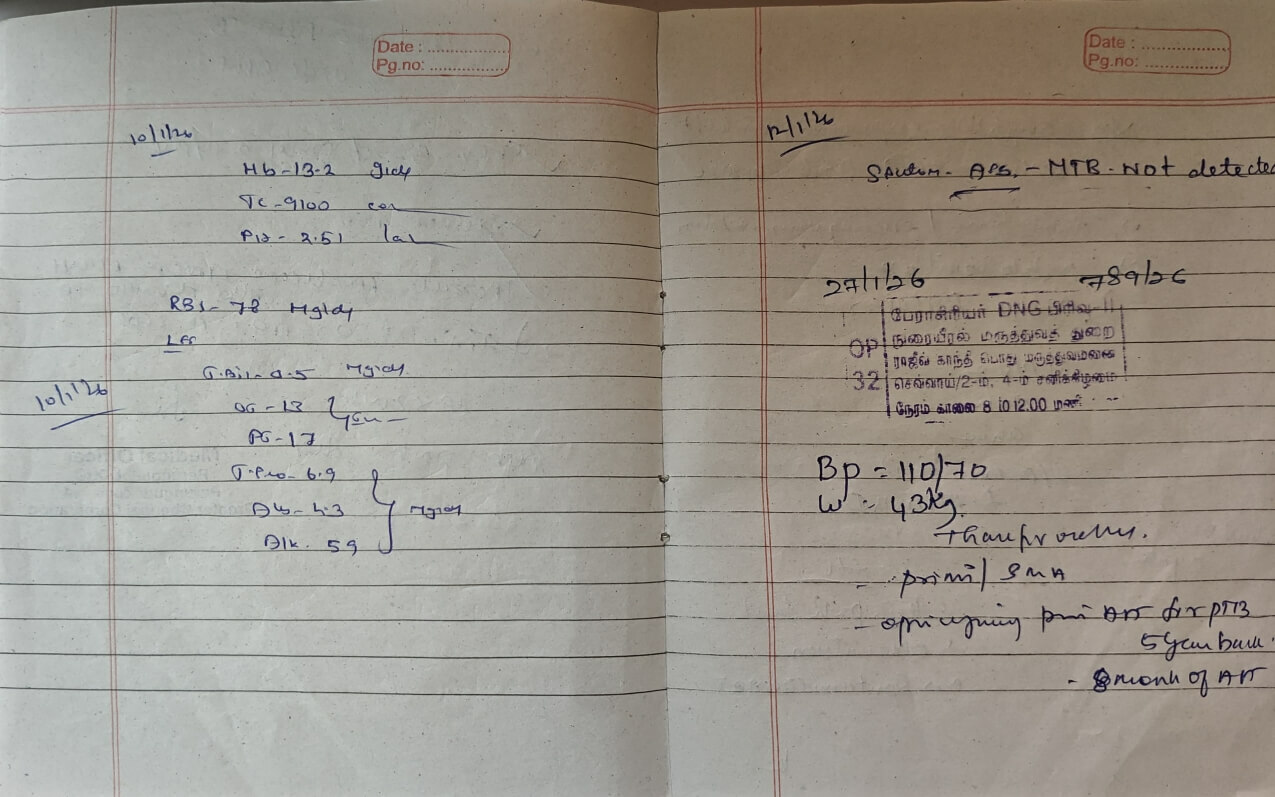 Date : ..................
Pg.no: ..................
10/1/26
Hb - 13.2 g/dl
TC - 9100
Plt - 2.51
RBS - 78 Mg/dl
T.Bil - 0.5 Mg/dl
10/1/26
OT - 13
PT - 17
T.Pro - 6.9
Alb - 4.3 Mg/dl
Alk. 59
Date : ..................
Pg.no: ..................
12/1/26
Sputum - AFB. - MTB - Not detected
27/1/26 789/26
பேராசிரியர் DNG பிரிவு-II
நுரையீரல் மருத்துவத் துறை
OP
ராஜீவ் காந்தி பொது மருத்துவமனை
32
செவ்வாய்/2-ம், 4-ம் சனிக்கிழமை
நேரம் காலை 8 to 12.00 மணி
Bp = 110/70
W - 43kg.
- primi/
- ATT for PTB
5 year back
- 8 month of ATT